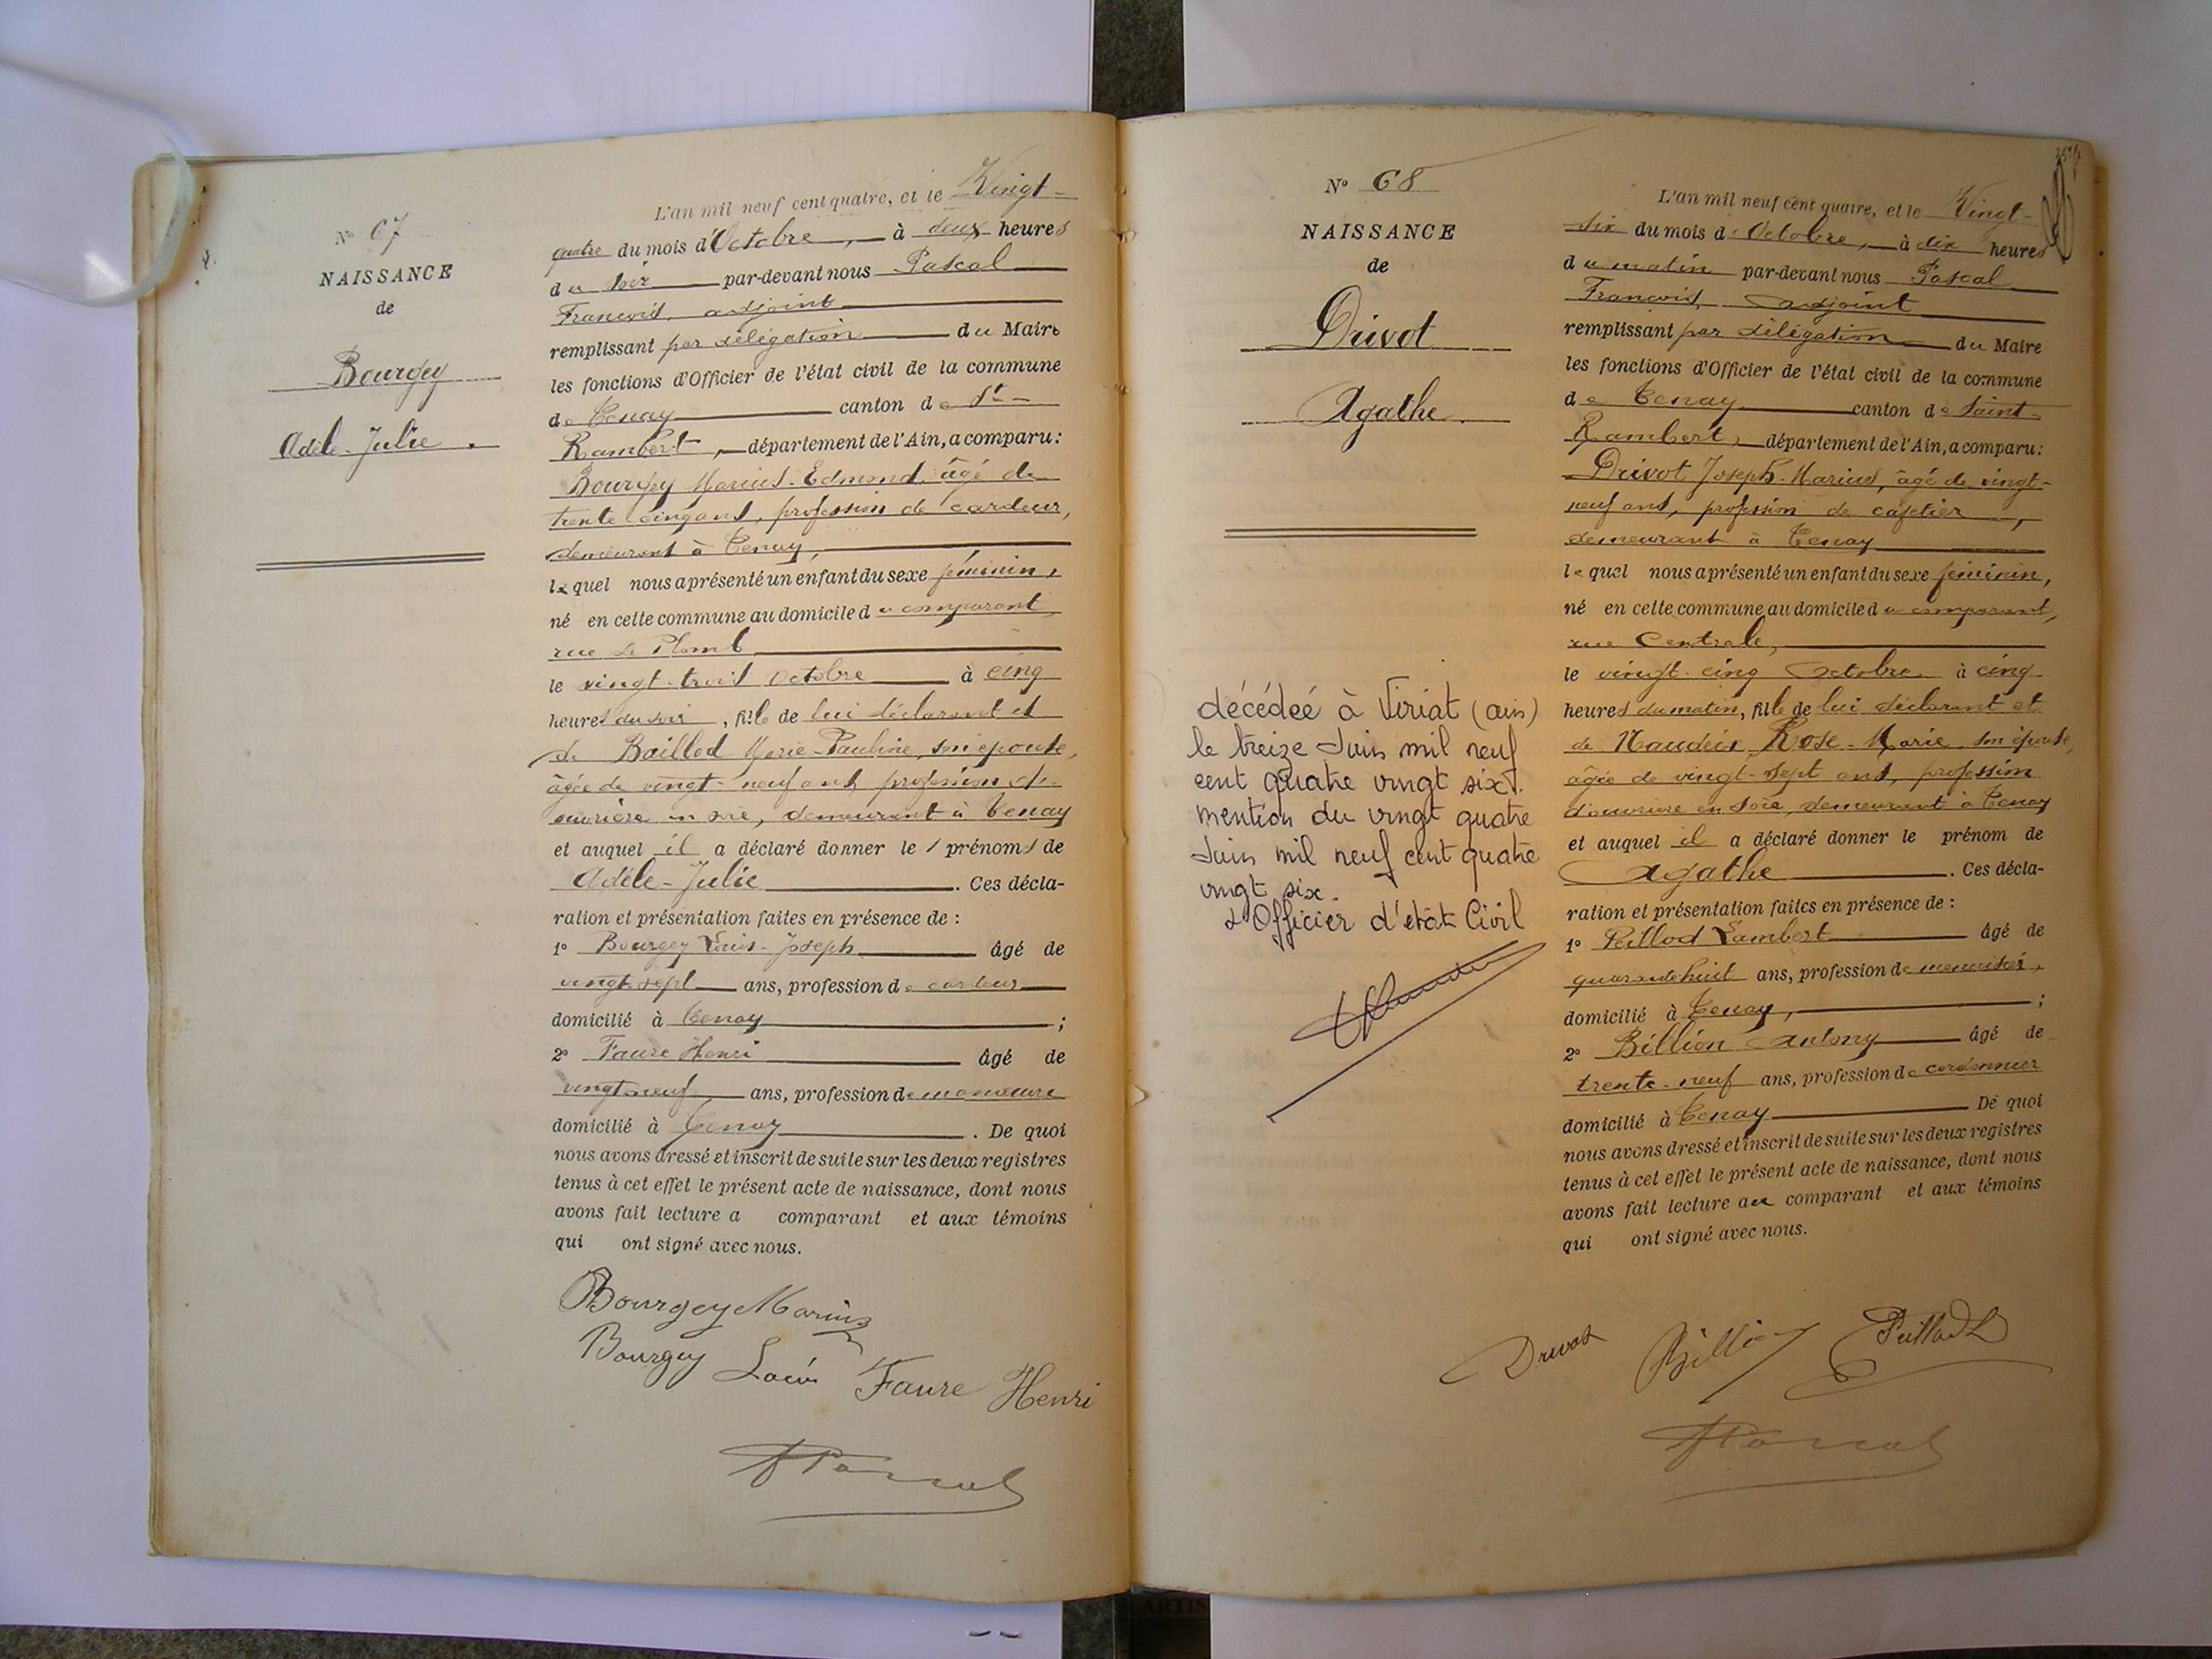 N° 67
NAISSANCE
de
Bourgey
Adèle-Julie.
L'an mil neuf cent quatre, et le Vingt-
quatre du mois d'Octobre, à deux heures
du soir par-devant nous Pascal
François, adjoint
remplissant par délégation du Maire
les fonctions d'Officier de l'état civil de la commune
de Tenay canton de St-
Rambert, département de l'Ain, a comparu:
Bourgey Marius-Edmond, âgé de
trente cinq ans, profession de cardeur,
demeurant à Tenay,
lequel nous a présenté un enfant du sexe féminin,
né en cette commune au domicile du comparant,
rue du Plomb
le vingt-trois Octobre à cinq
heures du soir, fille de lui déclarant et
de Baillod Marie-Pauline, son épouse,
âgée de vingt-neuf ans, profession de
ouvrière en soie, demeurant à Tenay
et auquel il a déclaré donner les prénoms de
Adèle-Julie. Ces décla-
ration et présentation faites en présence de:
1° Bourgey Louis-Joseph âgé de
vingt-sept ans, profession de cardeur
domicilié à Tenay;
2° Faure Henri âgé de
vingt-neuf ans, profession de manœuvre
domicilié à Tenay. De quoi
nous avons dressé et inscrit de suite sur les deux registres
tenus à cet effet le présent acte de naissance, dont nous
avons fait lecture a comparant et aux témoins
qui ont signé avec nous.
Bourgey Marius
Bourgey Louis Faure Henri
Pascal
N° 68
NAISSANCE
de
Drivot
Agathe.
décédeé à Viriat (ain)
le treize Juin mil neuf
cent quatre vingt six.
mention du vingt quatre
Juin mil neuf cent quatre
vingt six.
L'Officier d'etât Civil
L'an mil neuf cent quatre, et le Vingt-
six du mois d'Octobre, à dix heures
du matin par-devant nous Pascal
François, adjoint
remplissant par délégation du Maire
les fonctions d'Officier de l'état civil de la commune
de Tenay canton de Saint-
Rambert, département de l'Ain, a comparu:
Drivot Joseph-Marius, âgé de vingt-
neuf ans, profession de cafetier,
demeurant à Tenay
lequel nous a présenté un enfant du sexe féminin,
né en cette commune au domicile du comparant,
rue Centrale,
le vingt-cinq Octobre à cinq
heures du matin, fille de lui déclarant et
de Rose-Marie, son épouse,
âgée de vingt-sept ans, profession
d'ouvrière en soie, demeurant à Tenay
et auquel il a déclaré donner le prénom de
Agathe. Ces décla-
ration et présentation faites en présence de:
1° Peillod Lambert âgé de
quarante huit ans, profession de menuisier,
domicilié à Tenay,;
2° Billion Antony âgé de
trente-neuf ans, profession de cordonnier
domicilié à Tenay De quoi
nous avons dressé et inscrit de suite sur les deux registres
tenus à cet effet le présent acte de naissance, dont nous
avons fait lecture au comparant et aux témoins
qui ont signé avec nous.
Drivot Billion Peillod L
Pascal
ARTIS